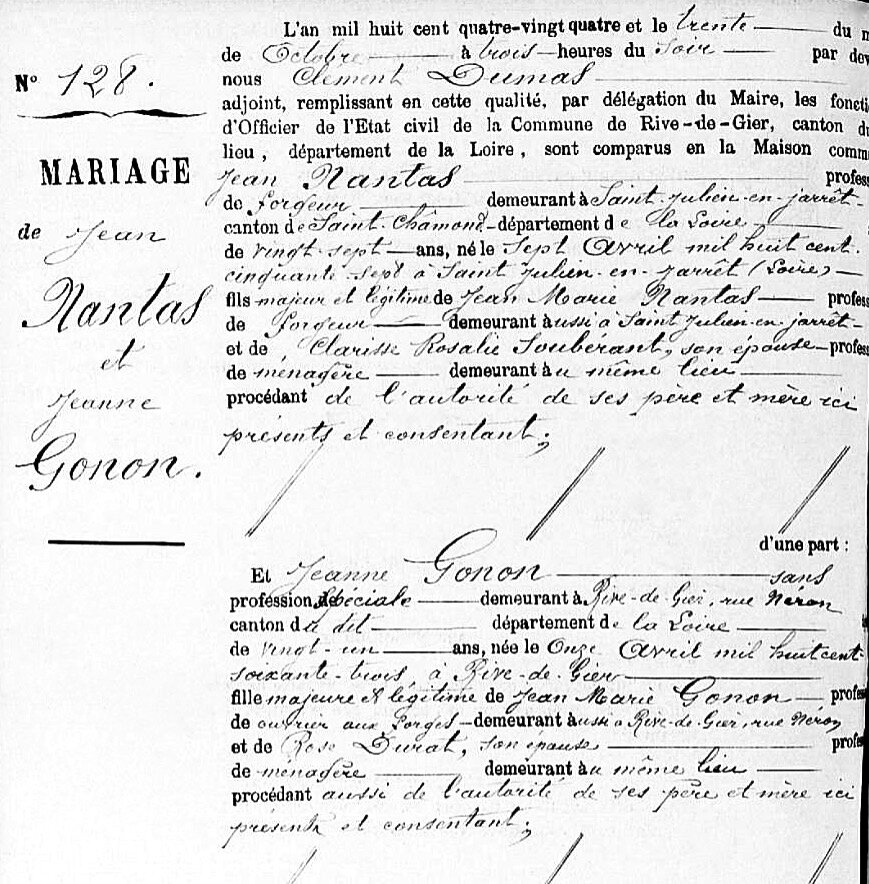 L'an mil huit cent quatre-vingt quatre et le trente du m
de Octobre à trois heures du Soir par dev
nous Clément Dumas
adjoint, remplissant en cette qualité, par délégation du Maire, les foncti
d'Officier de l'Etat civil de la Commune de Rive-de-Gier, canton du
lieu, département de la Loire, sont comparus en la Maison comm
Jean Nantas profess
de forgeur demeurant à Saint-Julien-en-jarrêt-
canton de Saint-Châmond-département de la Loire
de vingt-sept ans, né le Sept Avril mil huit cent
cinquante sept à Saint Julien-en-jarrêt (Loire)
fils majeur et légitime de Jean Marie Nantas profess
de forgeur demeurant à aussi à Saint Julien-en-jarrêt-
et de Clarisse Rosalie Souberant, son épouse profess
de ménagère demeurant à u même lieu
procédant de l'autorité de ses père et mère ici
présents et consentant;
N° 128.
MARIAGE
de Jean
Nantas
et
Jeanne
Gonon.
d'une part :
Et Jeanne Gonon sans
profession de spéciale demeurant à Rive-de-Gier, rue Néron
canton du dit département de la Loire
de vingt-un ans, née le Onze Avril mil huit cent
soixante-trois, à Rive-de-Gier
fille majeure et légitime de Jean Marie Gonon profess
de ouvrier aux forges demeurant à aussi à Rive-de-Gier, rue Néron
et de Rose Durat, son épouse profess
de ménagère demeurant à u même lieu
procédant aussi de l'autorité de ses père et mère ici
présents et consentant;